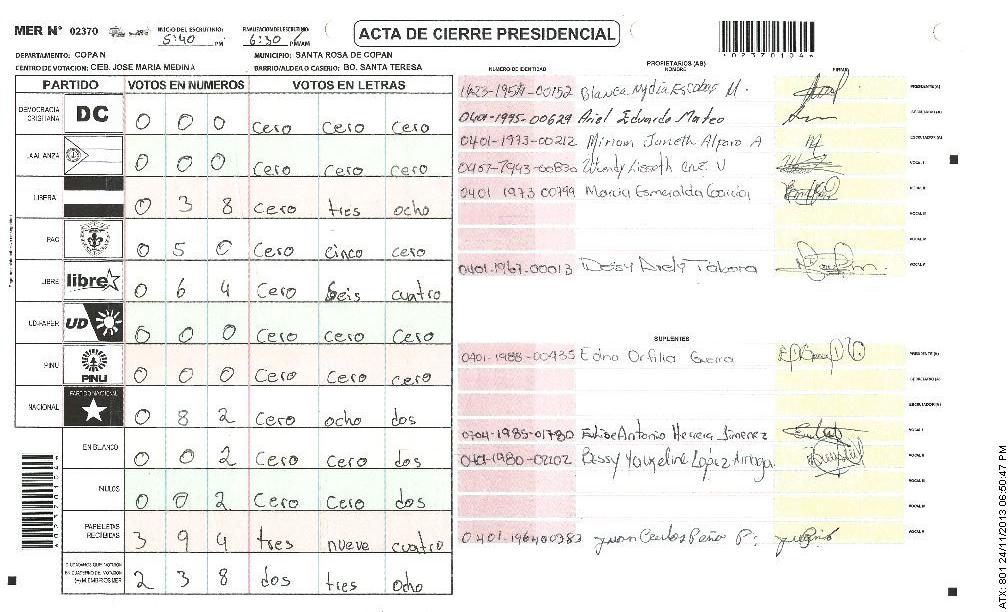 MER N° 02370
INICIO DEL ESCRUTINIO: 5:40 PM
FINALIZACION DEL ESCRUTINIO: 6:30 PM/AM
ACTA DE CIERRE PRESIDENCIAL
DEPARTAMENTO: COPAN
MUNICIPIO: SANTA ROSA DE COPAN
CENTRO DE VOTACION: CEB. JOSE MARIA MEDINA
BARRIO/ALDEA O CASERIO: BO. SANTA TERESA
PARTIDO VOTOS EN NUMEROS VOTOS EN LETRAS
DEMOCRACIA CRISTIANA DC 0 0 0 Cero Cero Cero
ALIANZA 0 0 0 Cero Cero cero
LIBERAL 0 3 8 Cero tres ocho
PAC 0 5 0 Cero Cinco cero
LIBRE libre 0 6 4 Cero Seis cuatro
UD-FAPER UD 0 0 0 Cero Cero Cero
PINU PINU 0 0 0 Cero Cero cero
NACIONAL PARTIDO NACIONAL 0 8 2 Cero ocho dos
EN BLANCO 0 0 2 Cero Cero dos
NULOS 0 0 2 Cero Cero dos
PAPELETAS RECIBIDAS 3 9 4 tres nueve cuatro
CIUDADANOS QUE VOTARON EN CUADERNO DE VOTACION (+) MIEMBROS MER 2 3 8 dos tres ocho
PROPIETARIOS (AS)
NUMERO DE IDENTIDAD NOMBRE FIRMA
Blanca Nydia Escobar M. PRESIDENTE (A)
0401-1995-00629 Ariel Eduardo Mateo SECRETARIO (A)
0401-1973-00212 Miriam Janeth Alfaro A ESCRUTADOR (A)
Wendy Lisseth Cruz V VOCAL I
0401 1973 00799 Maria Esmeralda Garcia VOCAL II
VOCAL III
VOCAL IV
0401-1967-00013 Deisy Arely Tabora VOCAL V
SUPLENTES
0401-1988-00435 Edna Orfilia Guerra PRESIDENTE (A)
SECRETARIO (A)
ESCRUTADOR (A)
0704-1985-01780 Antonio Herrera Jimenez VOCAL I
0401-1980-02102 Bessy Yaqueline Lopez VOCAL II
VOCAL III
VOCAL IV
0401-196400383 Juan Carlos Peña P. VOCAL V
ATX: 801 24/11/2013 06:50:47 PM